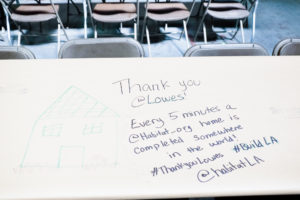 Thank you
@Lowes'
Every 5 minutes a
@Habitat_org home is
completed somewhere
in the world!
#ThankyouLowes #BuildLA
@habitatLA